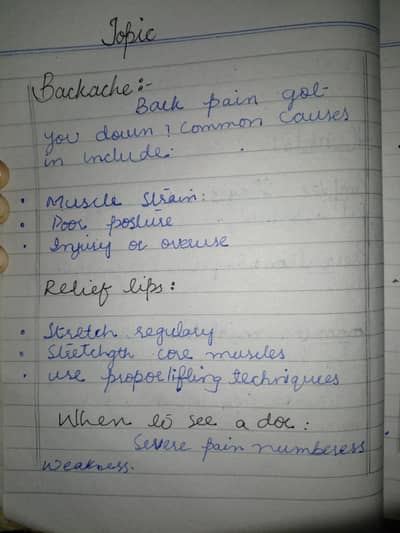 Topic
Backache:-
Back pain got
you down? Common Causes
in include:
• Muscle Strain:
• Poor posture
• Injury or overuse
Relief tips:
• Stretch regulary
• Stretchgth core muscles
• use proporlifling techniques
When to see a doc:
Severe pain numberess
weakness.